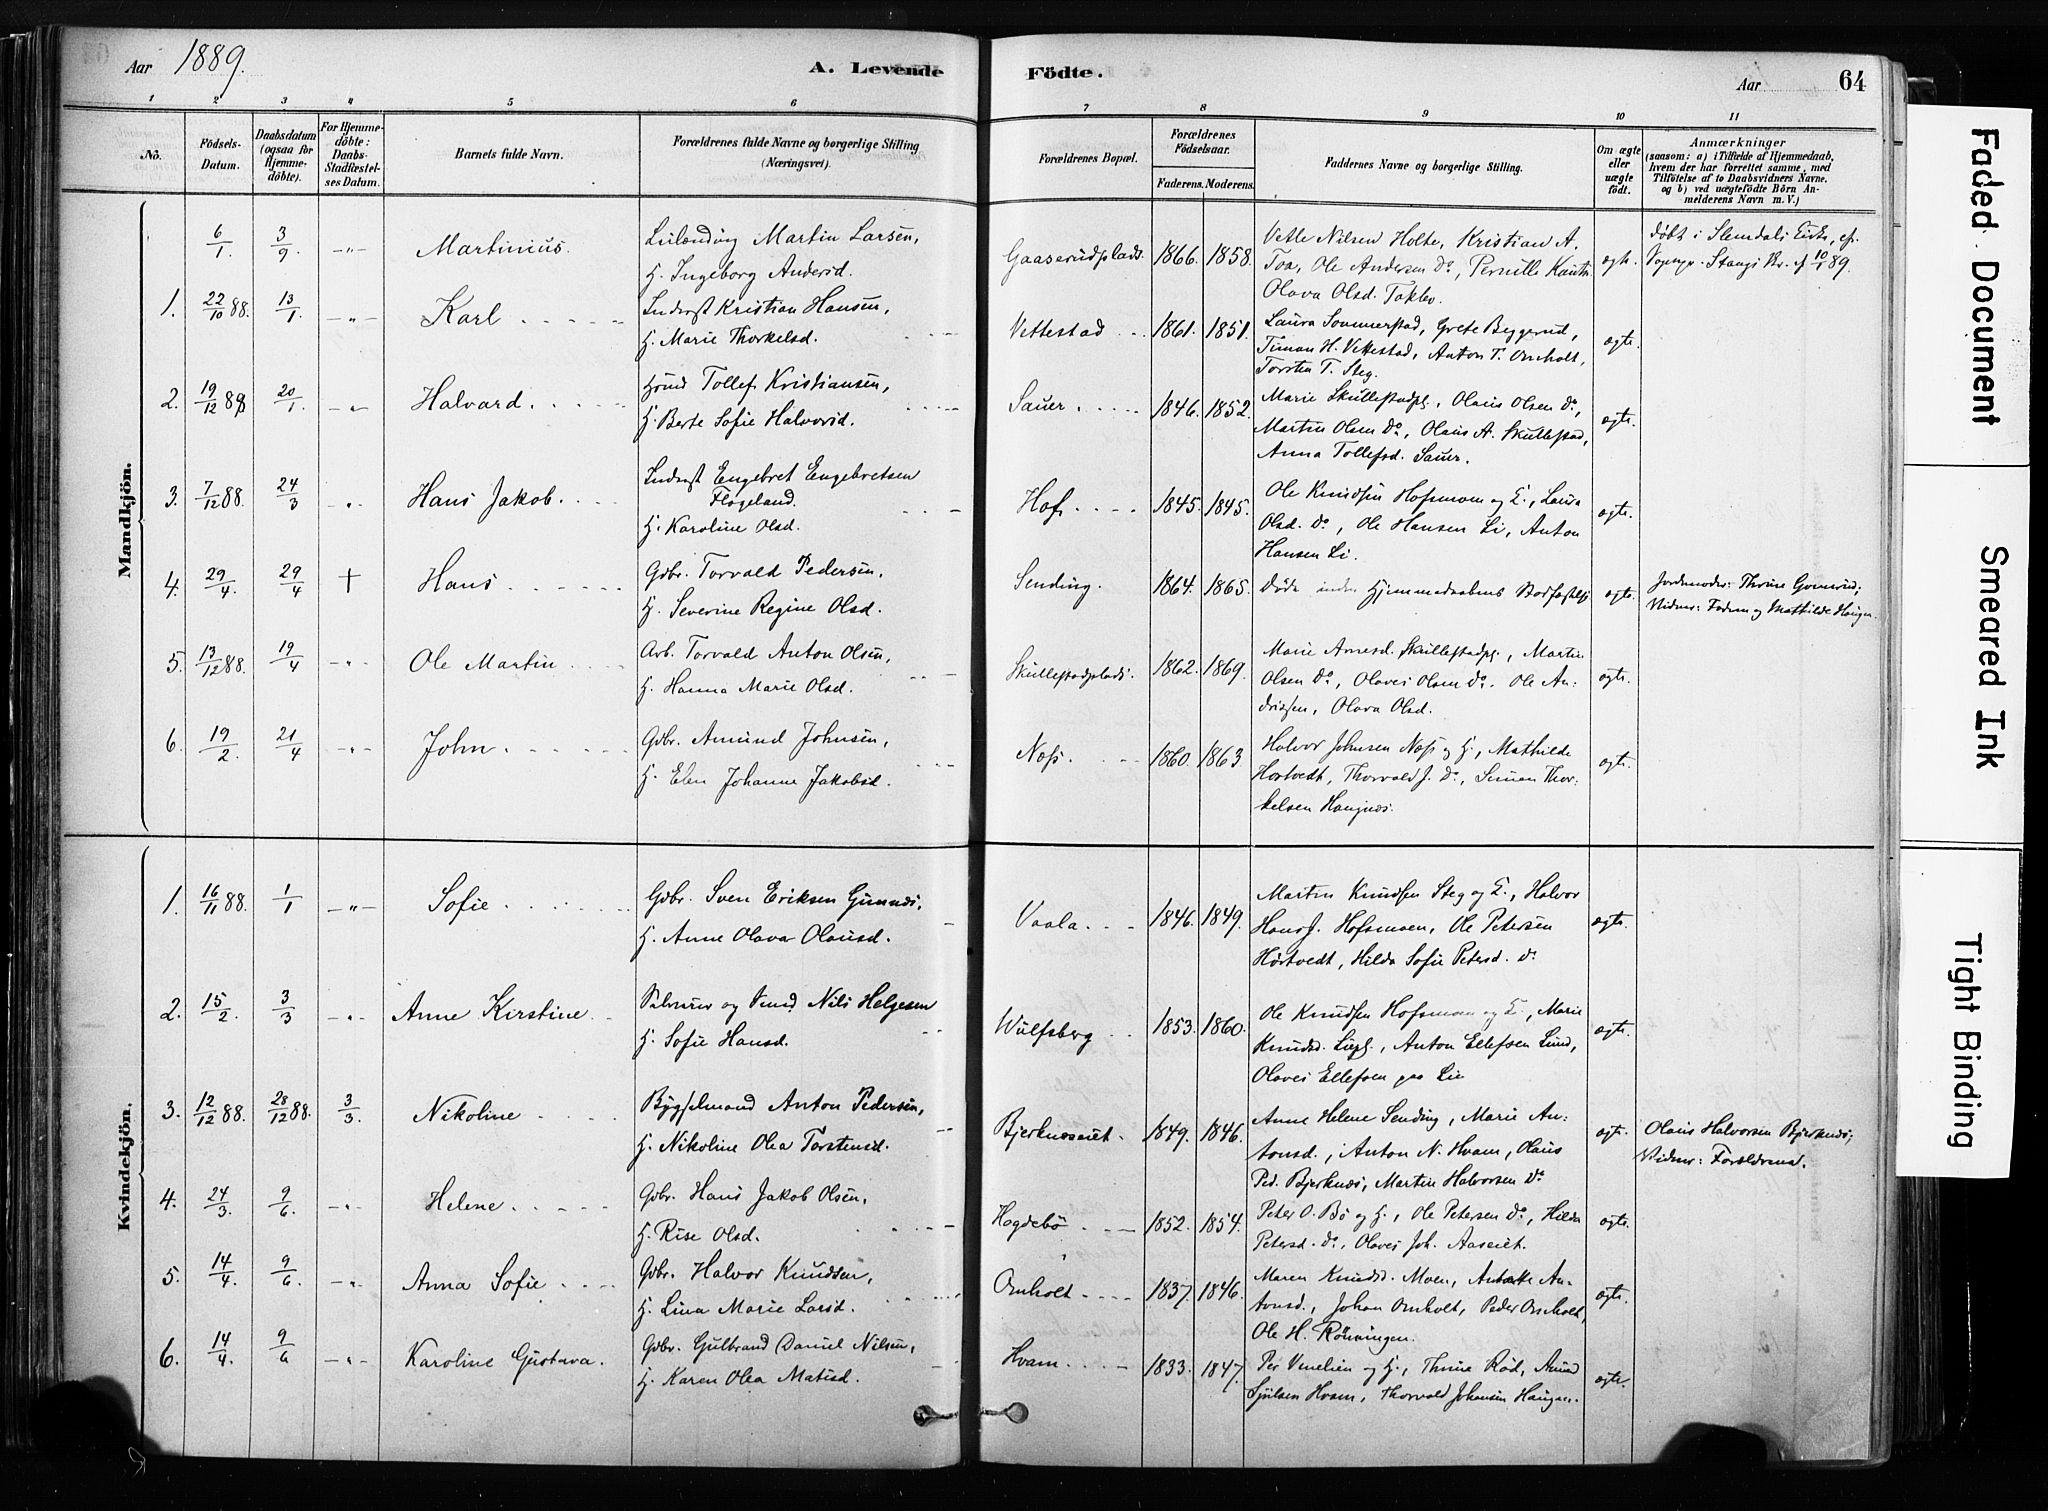 Aar 1889.
A. Levende Födte.
Aar 64
1 2 3 4 5 6 7 8 9 10 11
No.
Födsels-Datum.
Daabsdatum (ogsaa for Hjemme-döbte).
For Hjemme-döbte: Daabs-Stadfæstel-ses Datum.
Barnets fulde Navn.
Forældrenes fulde Navne og borgerlige Stilling (Næringsvei).
Forældrenes Bopæl.
Forældrenes Födselsaar.
Faderens. Moderens.
Faddernes Navne og borgerlige Stilling.
Om ægte eller uægte födt.
Anmærkninger
(saasom: a) i Tilfælde af Hjemmedaab,
hvem der har forrettet samme, med
Tilföielse af to Daabsvidners Navne.
og b) ved uægtefödte Börn An-
melderens Navn m. V.)
Mandkjön.
6/1 3/9 -"- Martinius. Martin Larsen,
H. Ingeborg Andersd.
Gaaserudplads 1866. 1858.
Vetle Nilsen Holte, Kristian A.
Toa, Ole Andersen Do, Pernille
Olava Olsd. Toklev.
ægte.
døbt i Slemdals
1. 22/10 88. 13/1 -"- Karl
Inderst Kristian Hansen,
H. Marie Thorkelsd.
Vettestad 1861. 1851.
Laura Sommerstad, Grete Byggerud,
Timan H. Vettestad, Anton T. Omholt,
Torsten T. Steg.
ægte.
2. 19/12 88 20/1 -"- Halvard.
Tollef Kristiansen,
H. Berte Sofie Halvorsd.
Sauer. 1846. 1852.
Marie Skullestadpl., Olaus Olsen Do,
Martin Olsen Do, Olaus A. Skullestad,
Anna Tollefsd. Sauer.
ægte.
3. 7/12 88. 24/3 -"- Hans Jakob.
Inderst Engebret Engebretsen
Flogeland.
H. Karoline Olsd.
Hof. 1845. 1845.
Ole Knudsen Hofsmoen og H., Laura
Olsd. Do, Ole Hansen Li, Anton
Hansen Li.
ægte.
4. 29/4. 29/4 † Hans
Gdbr. Torvald Pedersen,
H. Severine Regine Olsd.
Sending. 1864. 1865.
Døde inden Hjemmedaabens
ægte.
Jordemoder: Thrine
Vidner: Faderen og Mathilde Haugen
5. 13/12 88. 19/4 -"- Ole Martin
Arb. Torvald Anton Olsen,
H. Hanna Marie Olsd.
Skullestadplads. 1862. 1869.
Marie Arnesd. Skullestadpl., Martin
Olsen Do, Olaves Olsen Do. Ole An-
driasen, Olava Olsd.
ægte.
6. 19/2 21/4 -"- John.
Gdbr. Amund Johnsen,
H. Elen Johanne Jakobsd.
Næs. 1860. 1863
Halvor Johnsen Næs og H., Mathilde
Hörtvedt, Thorvald J. Do, Simen Thor-
kelsen Haugnæs.
ægte.
Kvindekjön.
1. 16/11 88. 1/1 -"- Sofie
Gdbr. Sven Eriksen Gunnæs,
H. Anne Olava Olausd.
Vaala. 1846. 1849.
Martin Knudsen Steg og H., Halvor
Hansj. Hofsmoen, Ole Petersen
Hörtvedt, Hilda Sofie Petersd. Do
ægte.
2. 15/2. 3/3 -"- Anne Kirstine
Nils Helgesen
H. Sofie Hansd.
Wulfsberg 1853. 1860.
Ole Knudsen Hofsmoen og H., Marie
Knudsd. Liepl., Anton Ellefsen Lund,
Olaves Ellefsen paa Lie
ægte.
3. 12/12 88. 28/12 88. 3/3. Nikoline
Bygselmand Anton Pedersen,
H. Nikoline Olea Torstensd.
Bjerknæseiet. 1849. 1846.
Anne Helene Sending, Marie An-
tonsd., Anton N. Hvam, Olaus
Ped. Bjerknæs, Martin Halvorsen Do
ægte.
Olaus Halvorsen Bjerknæs;
Vidner: Forældrene.
4. 24/3. 9/6 -"- Helene
Gdbr. Hans Jakob Olsen,
H. Rise Olsd.
Hogdebö 1852. 1854.
Peter O. Bö og H., Ole Petersen Do, Hilda
Petersd. Do, Olaves Joh. Aaseiet.
ægte.
5. 14/4. 9/6. -"- Anna Sofie
Gdbr. Halvor Knudsen,
H. Lina Marie Larsd.
Omholt 1837. 1846.
Maren Knudsd. Moen, An-
tonsd., Johan Omholt, Peder Omholt,
Ole H. Rönningen.
ægte.
6. 14/4. 9/6 -"- Karoline Gustava.
Gdbr. Gulbrand Daniel Nilsen,
H. Karen Olea Matisd.
Hvam 1833. 1847.
Per og H., Thrine Röd,
Hvam, Thorvald Johansen Haugnæs.
ægte.
Faded Document
Smeared Ink
Tight Binding